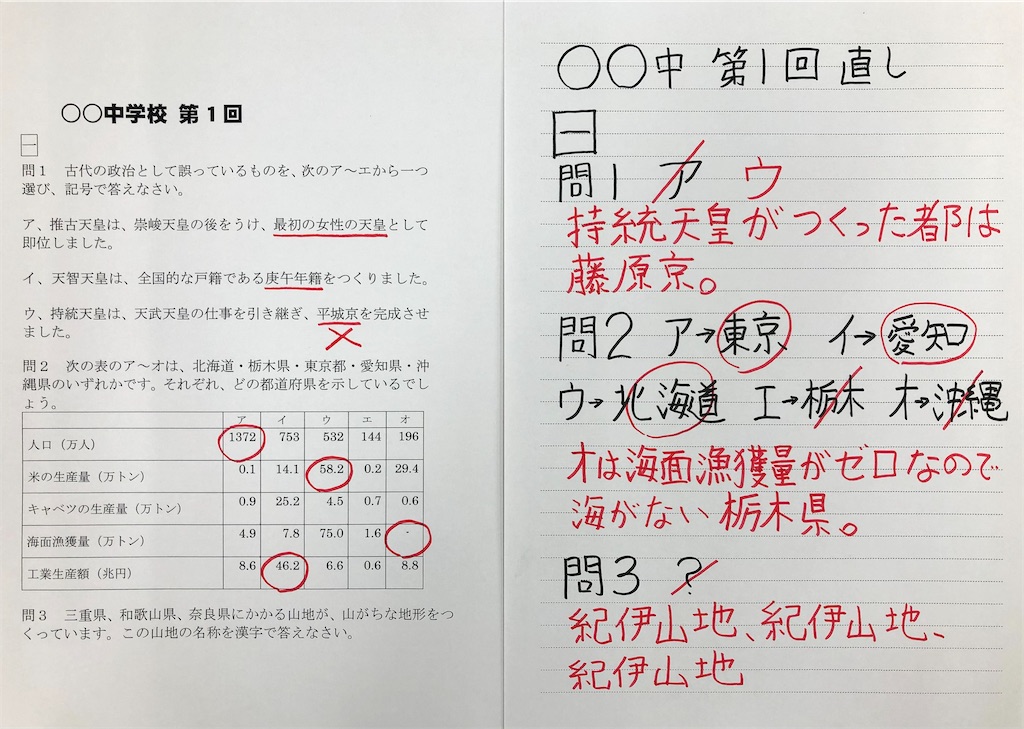 〇〇中学校 第１回
一
問１ 古代の政治として誤っているものを、次のア～エから一つ
選び、記号で答えなさい。
ア、推古天皇は、崇峻天皇の後をうけ、最初の女性の天皇として
即位しました。
イ、天智天皇は、全国的な戸籍である庚午年籍をつくりました。
ウ、持統天皇は、天武天皇の仕事を引き継ぎ、平城京を完成させ
ました。
問２ 次の表のア～オは、北海道・栃木県・東京都・愛知県・沖
縄県のいずれかです。それぞれ、どの都道府県を示しているでし
ょう。
ア イ ウ エ オ
人口（万人） 1372 753 532 144 196
米の生産量（万トン） 0.1 14.1 58.2 0.2 29.4
キャベツの生産量（万トン） 0.9 25.2 4.5 0.7 0.6
海面漁獲量（万トン） 4.9 7.8 75.0 1.6 -
工業生産額（兆円） 8.6 46.2 6.6 0.6 8.8
問３ 三重県、和歌山県、奈良県にかかる山地が、山がちな地形をつ
くっています。この山地の名称を漢字で答えなさい。
〇〇中 第1回 直し
一
問1 ア ウ
持統天皇がつくった都は
藤原京。
問2 ア→東京 イ→愛知
ウ→北海道 エ→栃木 オ→沖縄
オは海面漁獲量がゼロなので
海がない栃木県。
問3 ?
紀伊山地、紀伊山地、
紀伊山地